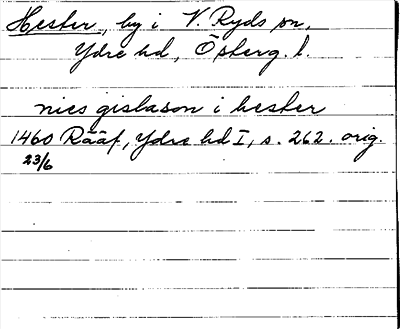 Hester, by i V. Ryds sn,
Ydre hd, Österg. l.
nies gislason i hester
1460 Rääf, Ydre hd I, s. 262. orig.
23/6